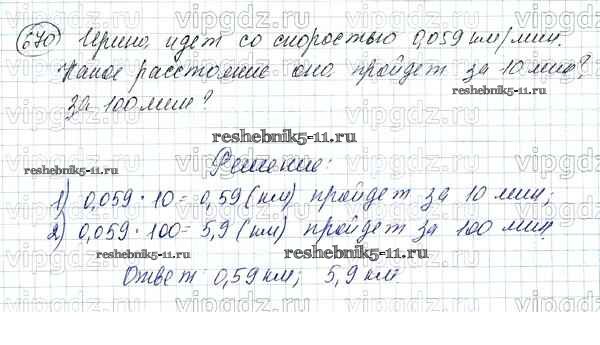 670 Ирина идет со скоростью 0,059 км/мин.
Какое расстояние она пройдет за 10 мин?
за 100 мин?
reshebnik5-11.ru
reshebnik5-11.ru
Решение:
1) 0,059 · 10 = 0,59 (км) пройдет за 10 мин;
2) 0,059 · 100 = 5,9 (км) пройдет за 100 мин.
reshebnik5-11.ru
Ответ: 0,59 км; 5,9 км.
vipgdz.ru